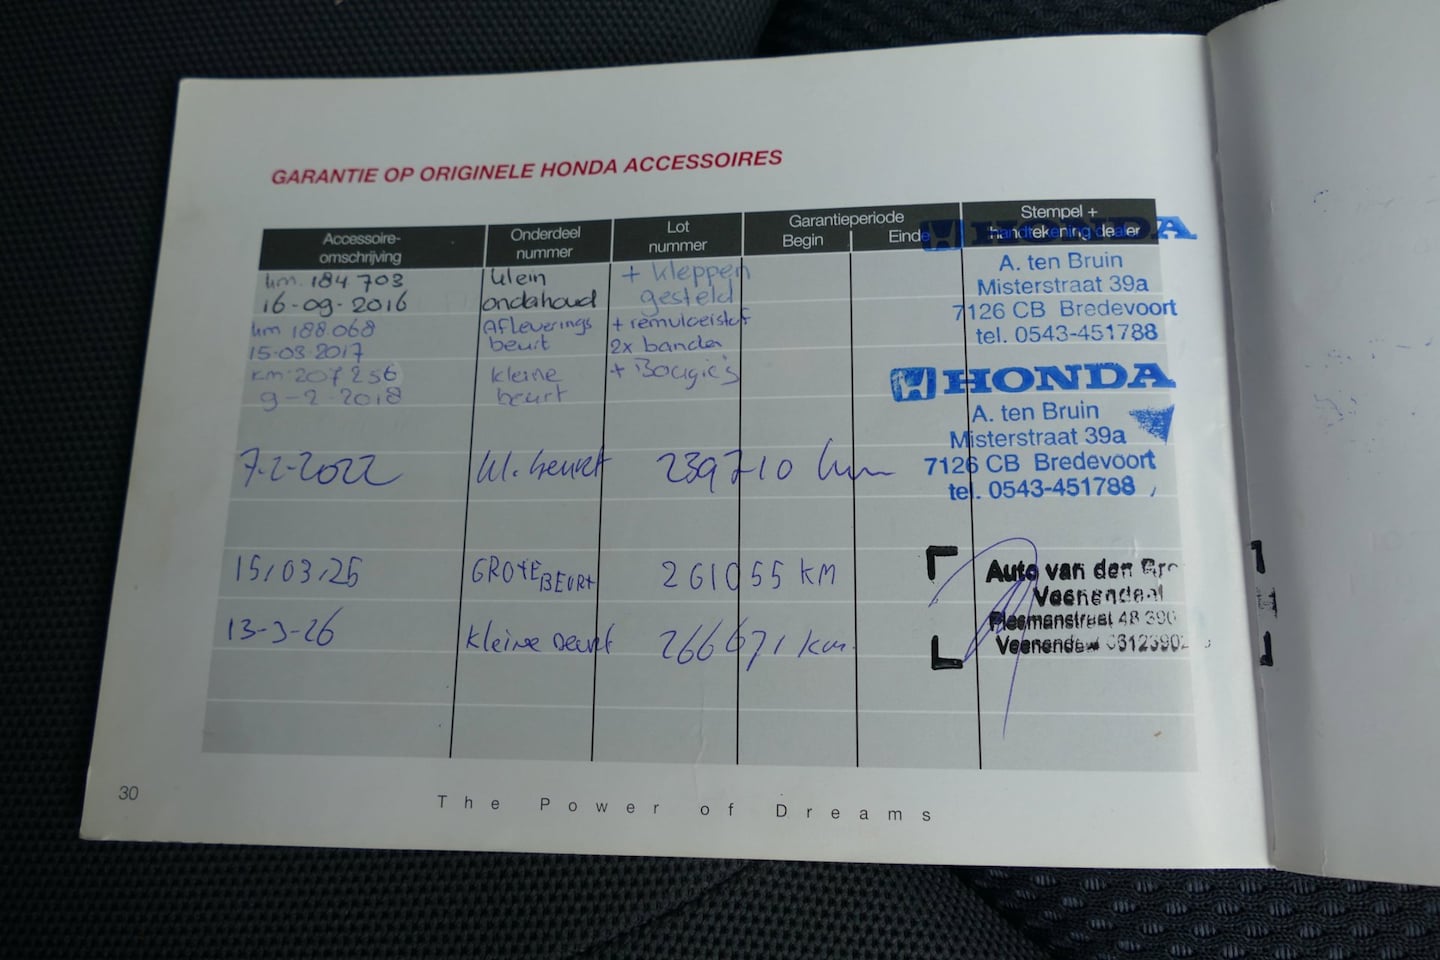 GARANTIE OP ORIGINELE HONDA ACCESSOIRES
Accessoire-
omschrijving
Onderdeel
nummer
Lot
nummer
Garantieperiode
Begin
Einde
Stempel +
handtekening dealer
HONDA
km. 184 703
klein
+ kleppen
16-09-2016
onderhoud
gesteld
km 188.068
Afleverings
+ remvloeistof
15-03-2017
beurt
2x banden
km 207256
kleine
+ Bougie's
9-2-2018
beurt
A. ten Bruin
Misterstraat 39a
7126 CB Bredevoort
tel. 0543-451788
HONDA
A. ten Bruin
Misterstraat 39a
7126 CB Bredevoort
tel. 0543-451788
7-2-2022
kl. beurt
239710 km
15/03/25
GROTE BEURT
261055 KM
13-3-26
kleine beurt
266671 km.
Auto van den
Veenendaal
Plesmanstraat 48
Veenendaal
30
The Power of Dreams